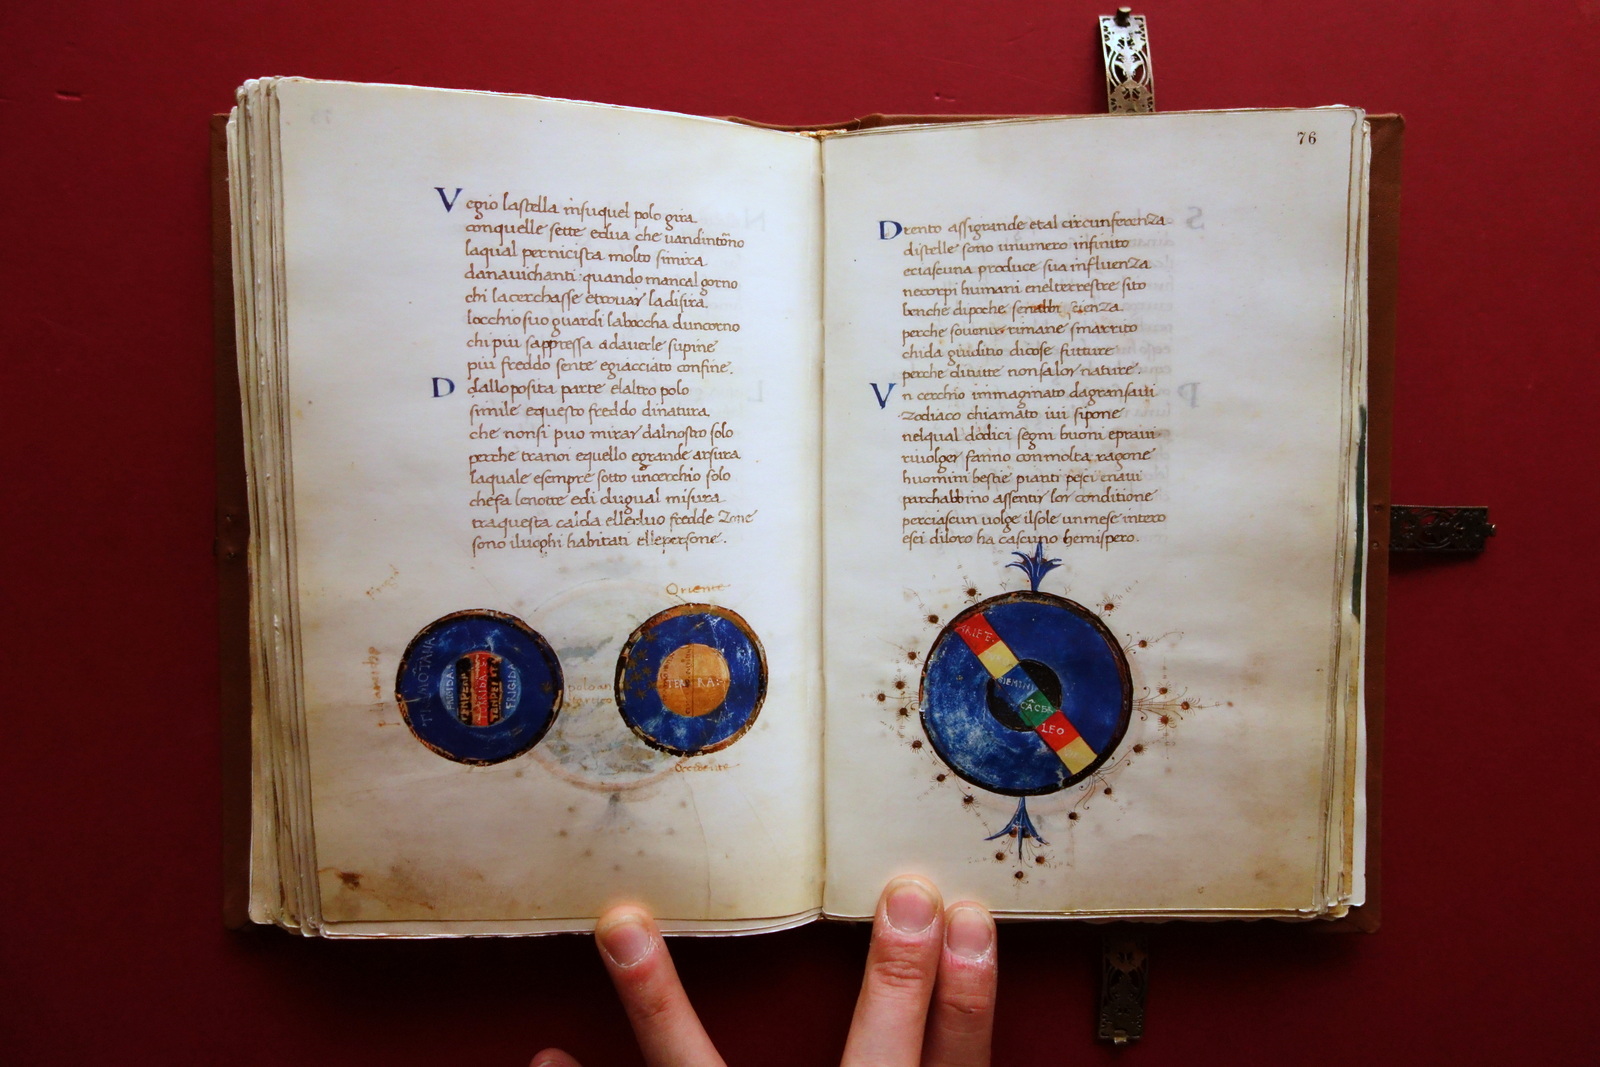 Vegio lastella insuquel polo gira
conquelle sette edua che vandintorno
laqual pernicista molto simira
danavichanti quando mancal gorno
chi lacerchasse etrovar ladisira
locchio suo guardi laboccha duncorno
chi piu sappressa adaverle supine
piu freddo sente eghiacciato confine.
Dallo posita parte elaltro polo
simile equesto freddo dinatura
che nonsi puo mirar dalnostro solo
perche tranoi equello egrande arsura
laquale esempre sotto uncerchio solo
chefa lenotte edi dugual misura
traquesta calda elledue fredde Zone
sono iluoghi habitati ellepersone.
Oriente
TRAMOTANA
FRIGIDA
TEMPERATA
TORRIDA
TEMPERATA
FRIGIDA
polo an
TERRA
Occidente
76
Drento assigrande etal circunferenza
distelle sono unumero infinito
eciascuna produce sua influenza
necorpi humani enelterrestre sito
benche dipoche senabbi scienza
perche sovente rimane smarrito
chida giuditio dicose future
perche ditutte nonsalor nature.
Vn cerchio immaginato dagransavi
Zodiaco chiamato ivi sipone
nelqual dodici segni buoni epravi
rivolger fanno conmolta ragone
huomini bestie pianti pesci enavi
parchabbino assentir lor conditione
perciascun volge ilsole unmese intero
esei diloro ha cascuno hemispero.
ARIETE
GEMINI
CACER
LEO